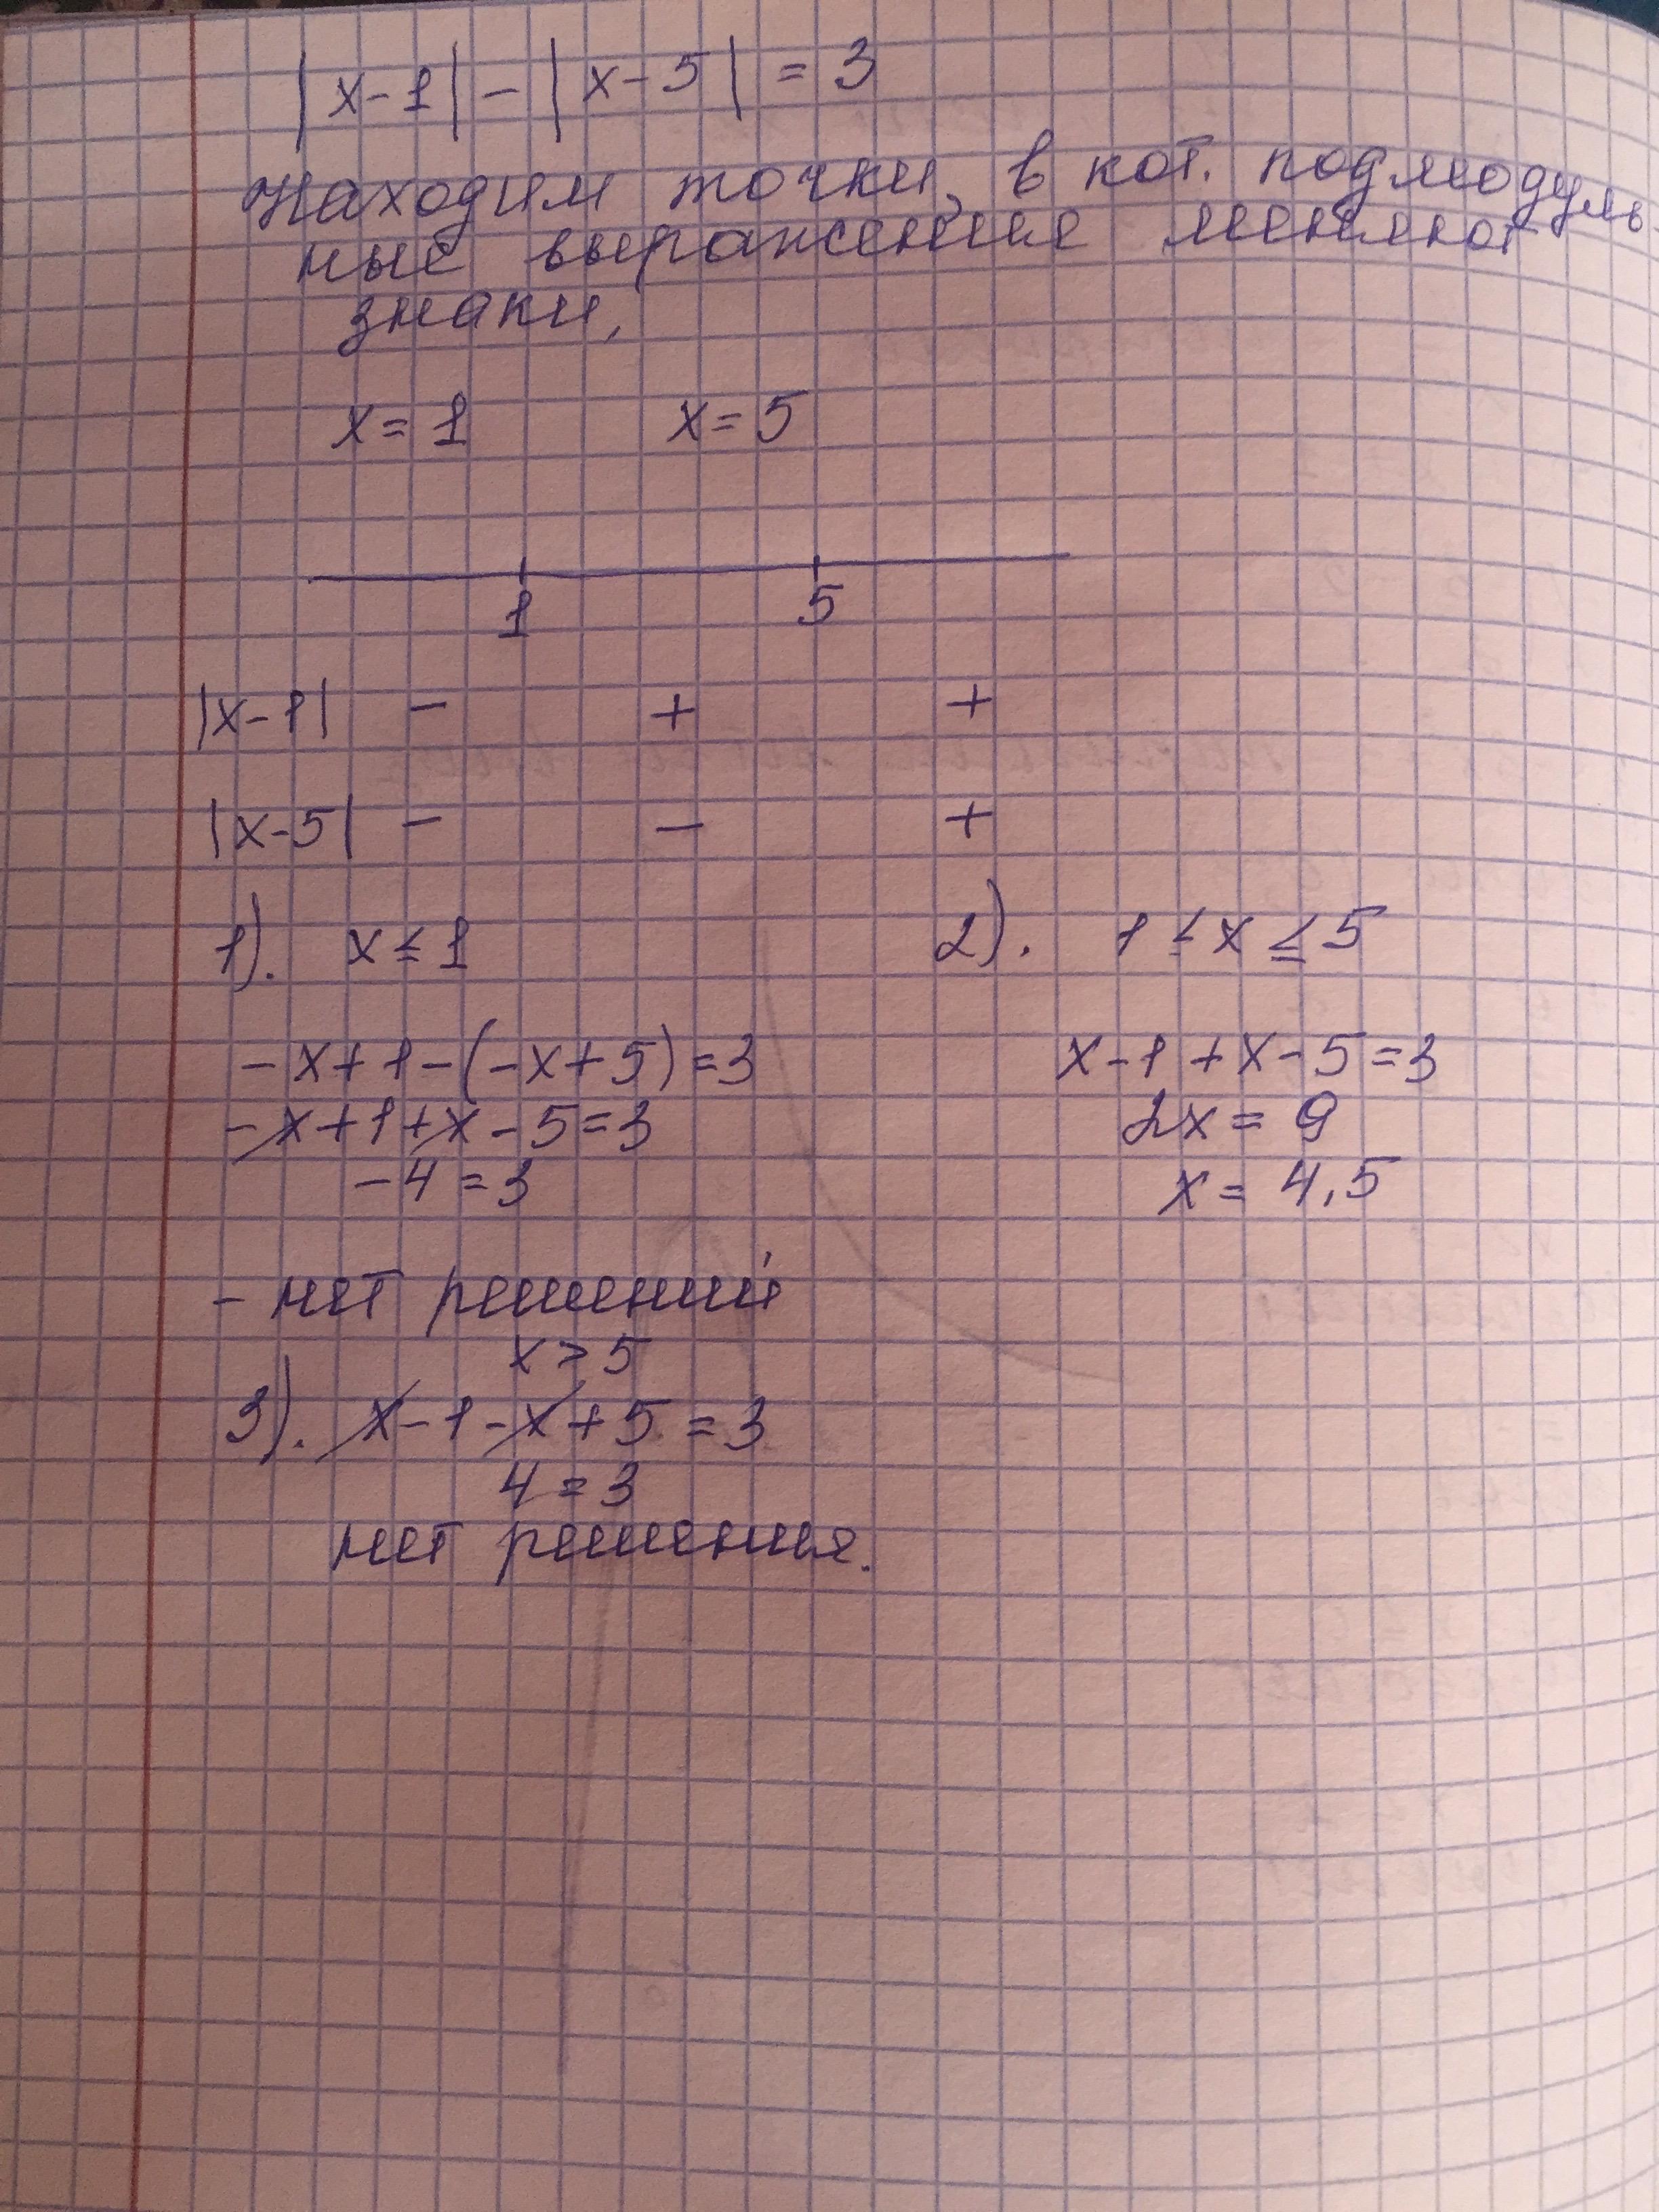 |x-1| - |x-5| = 3
Находим точки, в кот. подмодуль
ные выражения меняют
знаки,
x = 1 x = 5
1 5
|x-1| - + +
|x-5| - - +
1). x ≤ 1
2). 1 ≤ x ≤ 5
-x+1-(-x+5)=3
-x+1+x-5=3
-4=3
- нет решений
x-1+x-5=3
2x=9
x=4,5
x>5
3). x-1-x+5=3
4=3
нет решения.